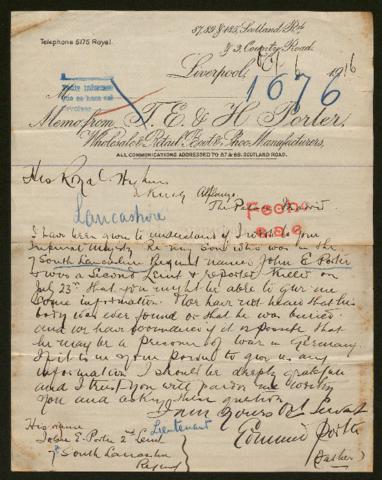 Telephone 5175 Royal.
87, 89 & 135, Scotland Rd.
& 3, Country Road.
Liverpool, 1916
1076
M
Memo. from T. E. & H. Porter,
Wholesale & Retail Boot & Shoe Manufacturers,
ALL COMMUNICATIONS ADDRESSED TO 87 & 89, SCOTLAND ROAD.
His Royal Highness
King Alfonso
The Palace Madrid
Lancashire
I have been given to understand if I wrote to you
Imperial Majesty Re my son who was in the
7 South Lancashire Regment named John E Porter
& was a Second Lieut & reported killed on
July 23rd that you might be able to give me
some information. We have not heard that his
body was ever found or that he was buried
and we have been wondering if it is possible that
he may be a prisoner of war in Germany.
If it is in your power to give us any
information I should be deeply grateful
and I trust you will pardon me worrying
you and asking these question
I am yours Ob Servant
Edmund Porter
(Father)
His name Lieutenant
John E. Porter 2nd Lieut
7 South Lancashire
Regment